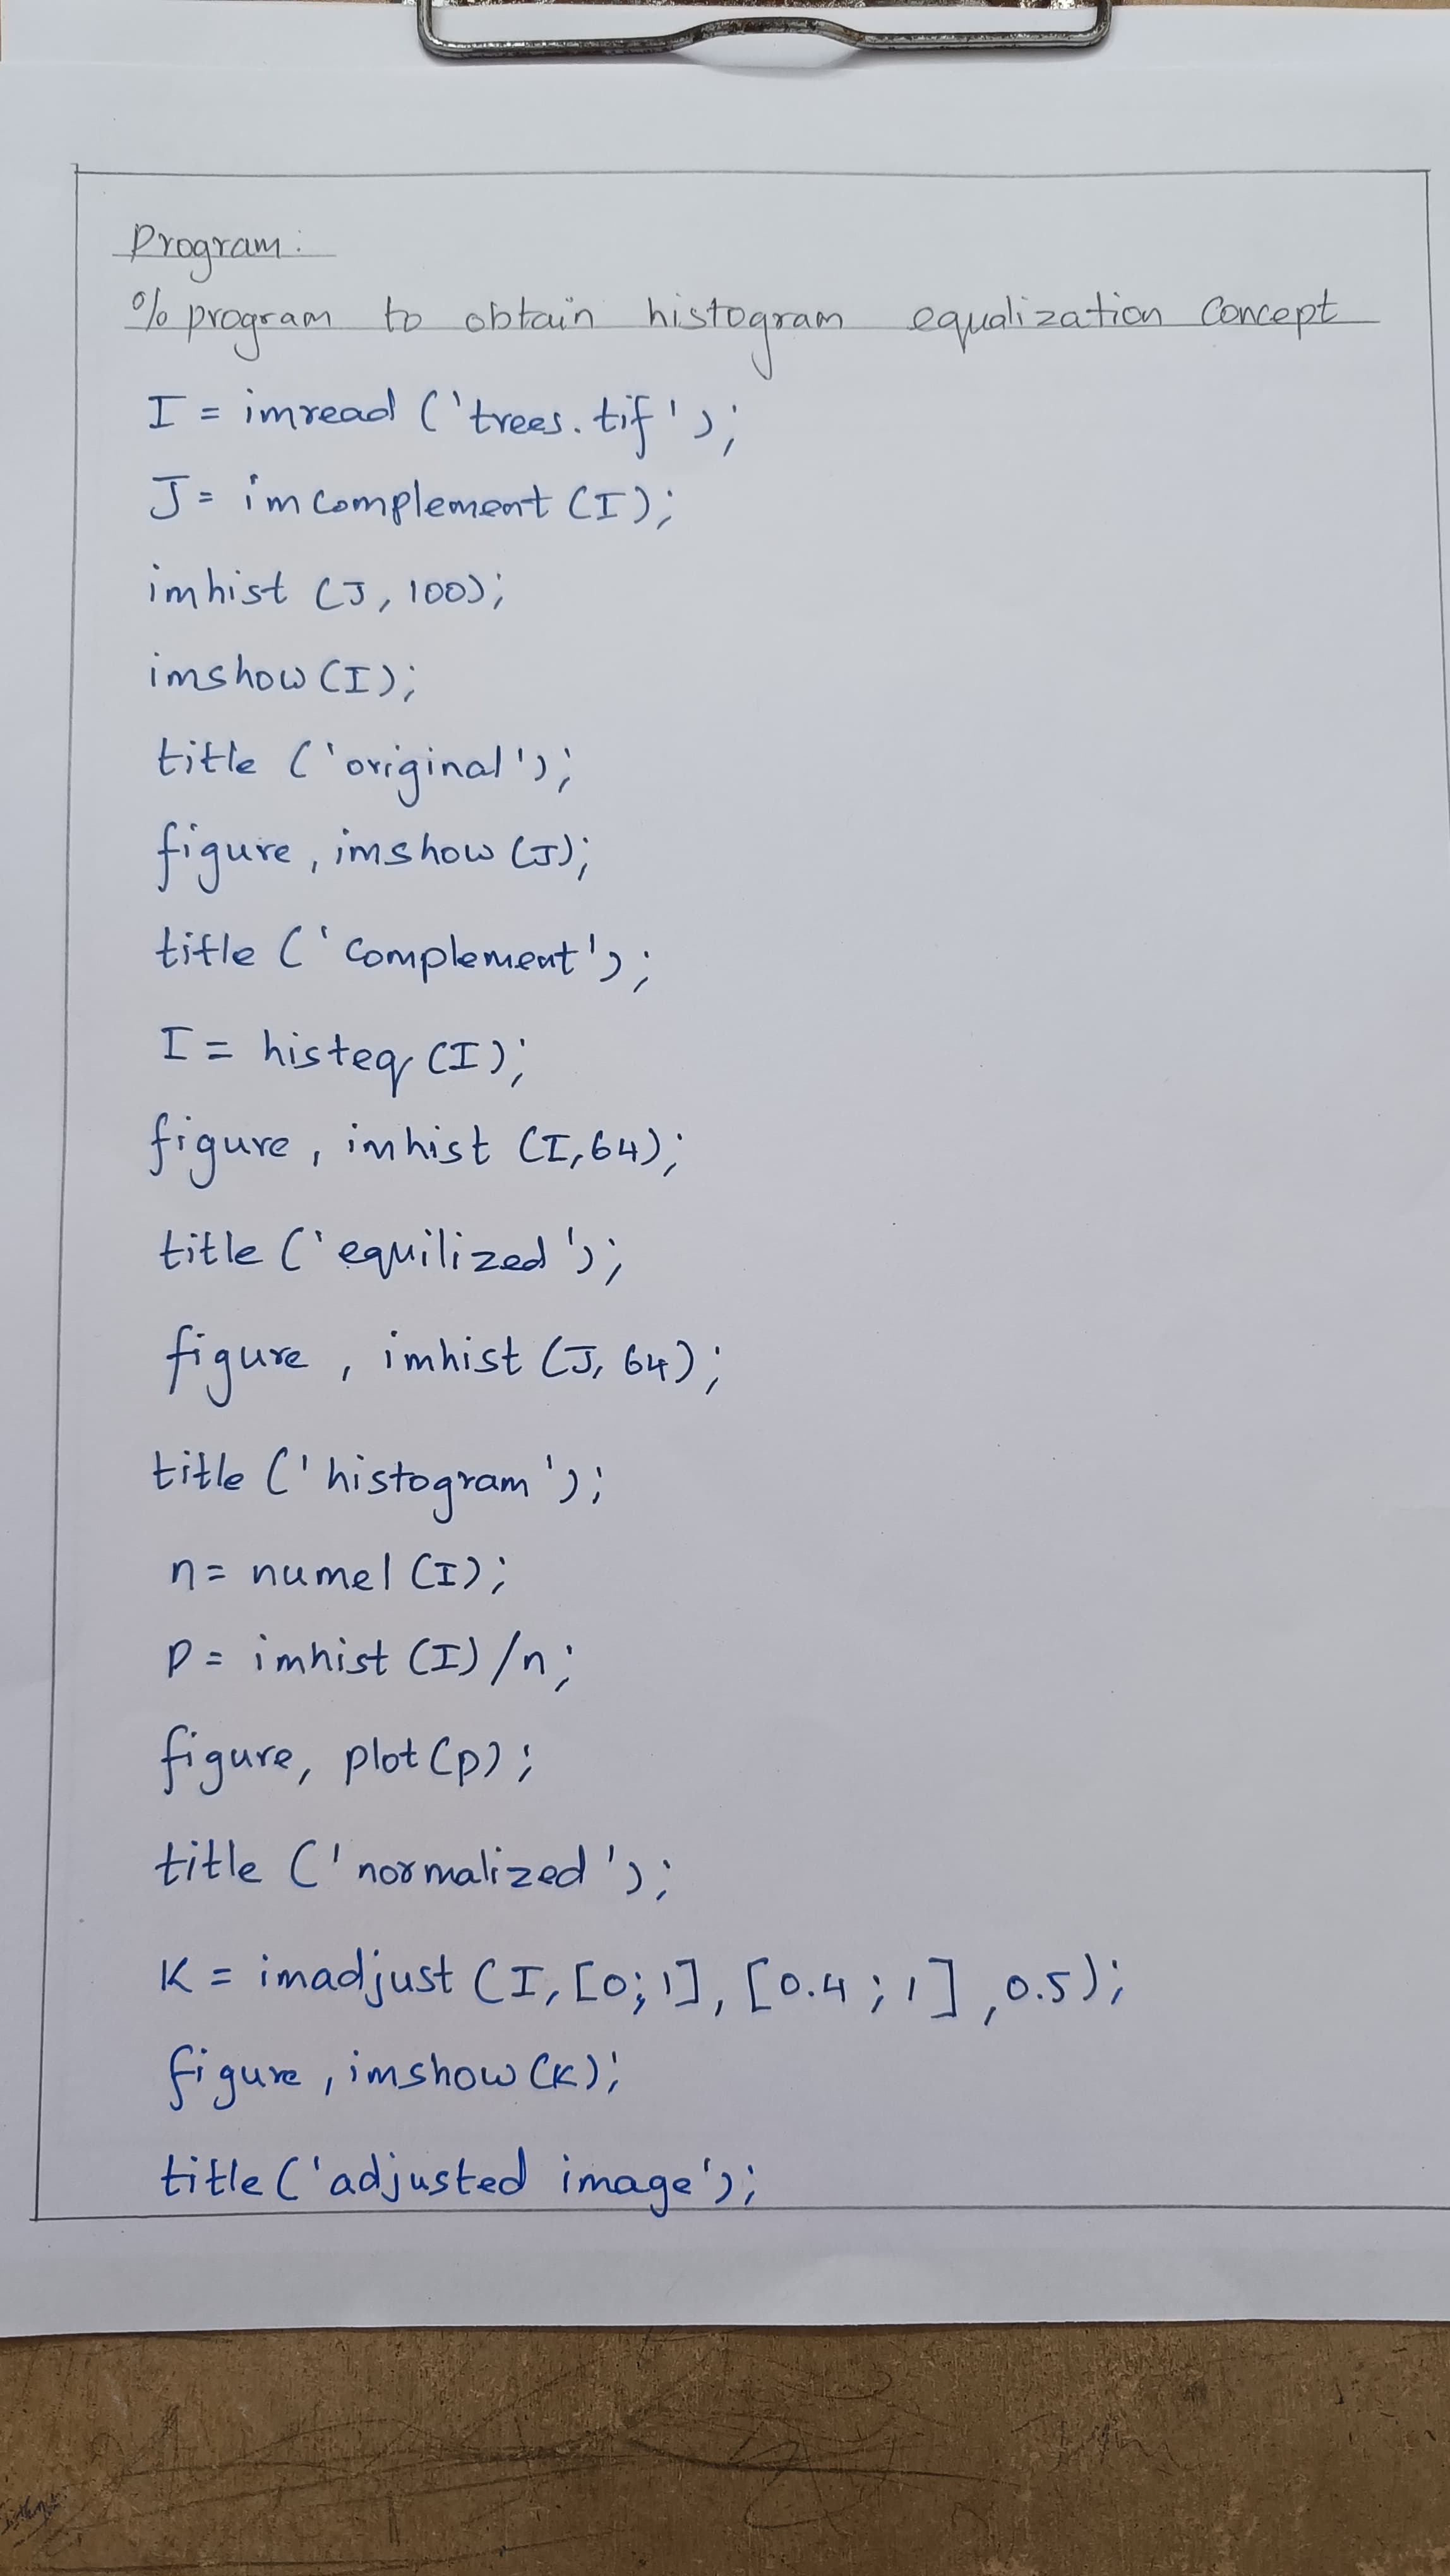 Program:
% program to obtain histogram equalization concept
I = imread ('trees.tif');
J = imcomplement (I);
imhist (J, 100);
imshow (I);
title ('original');
figure, imshow (J);
title ('complement');
I = histeq (I);
figure, imhist (I, 64);
title ('equilized');
figure, imhist (J, 64);
title ('histogram');
n = numel (I);
P = imhist (I) /n;
figure, plot (p);
title ('normalized');
K = imadjust (I, [0; 1], [0.4 ; 1] , 0.5);
figure, imshow (K);
title ('adjusted image');